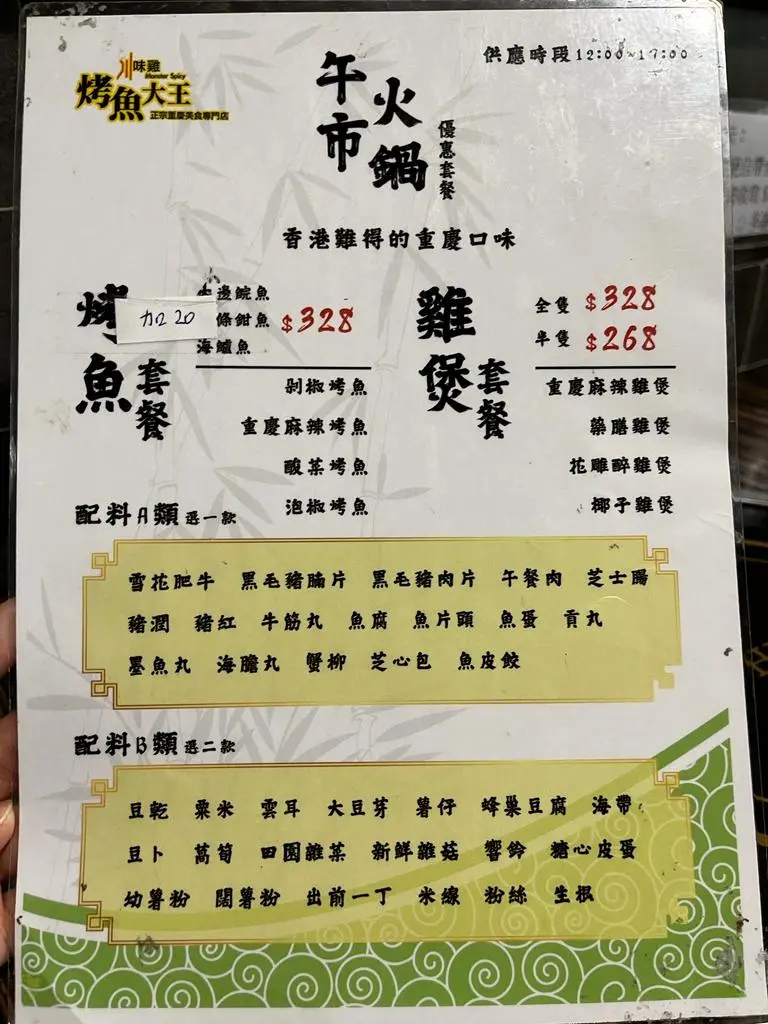 川味雞
Monster Spicy
烤魚大王
正宗重慶美食專門店
供應時段12:00~17:00
午市
火鍋
優惠套餐
香港難得的重慶口味
烤魚
套餐
加20
邊鯇魚
條鉗魚
海鱸魚
$328
剁椒烤魚
重慶麻辣烤魚
酸菜烤魚
泡椒烤魚
雞煲
套餐
全隻 $328
半隻 $268
重慶麻辣雞煲
藥膳雞煲
花雕醉雞煲
椰子雞煲
配料A類 選一款
雪花肥牛 黑毛豬腩片 黑毛豬肉片 午餐肉 芝士腸
豬潤 豬紅 牛筋丸 魚腐 魚片頭 魚蛋 貢丸
墨魚丸 海膽丸 蟹柳 芝心包 魚皮餃
配料B類 選二款
豆乾 粟米 雲耳 大豆芽 薯仔 蜂巢豆腐 海帶
豆卜 萵筍 田園雜菜 新鮮雜菇 響鈴 糖心皮蛋
幼薯粉 闊薯粉 出前一丁 米線 粉絲 生根